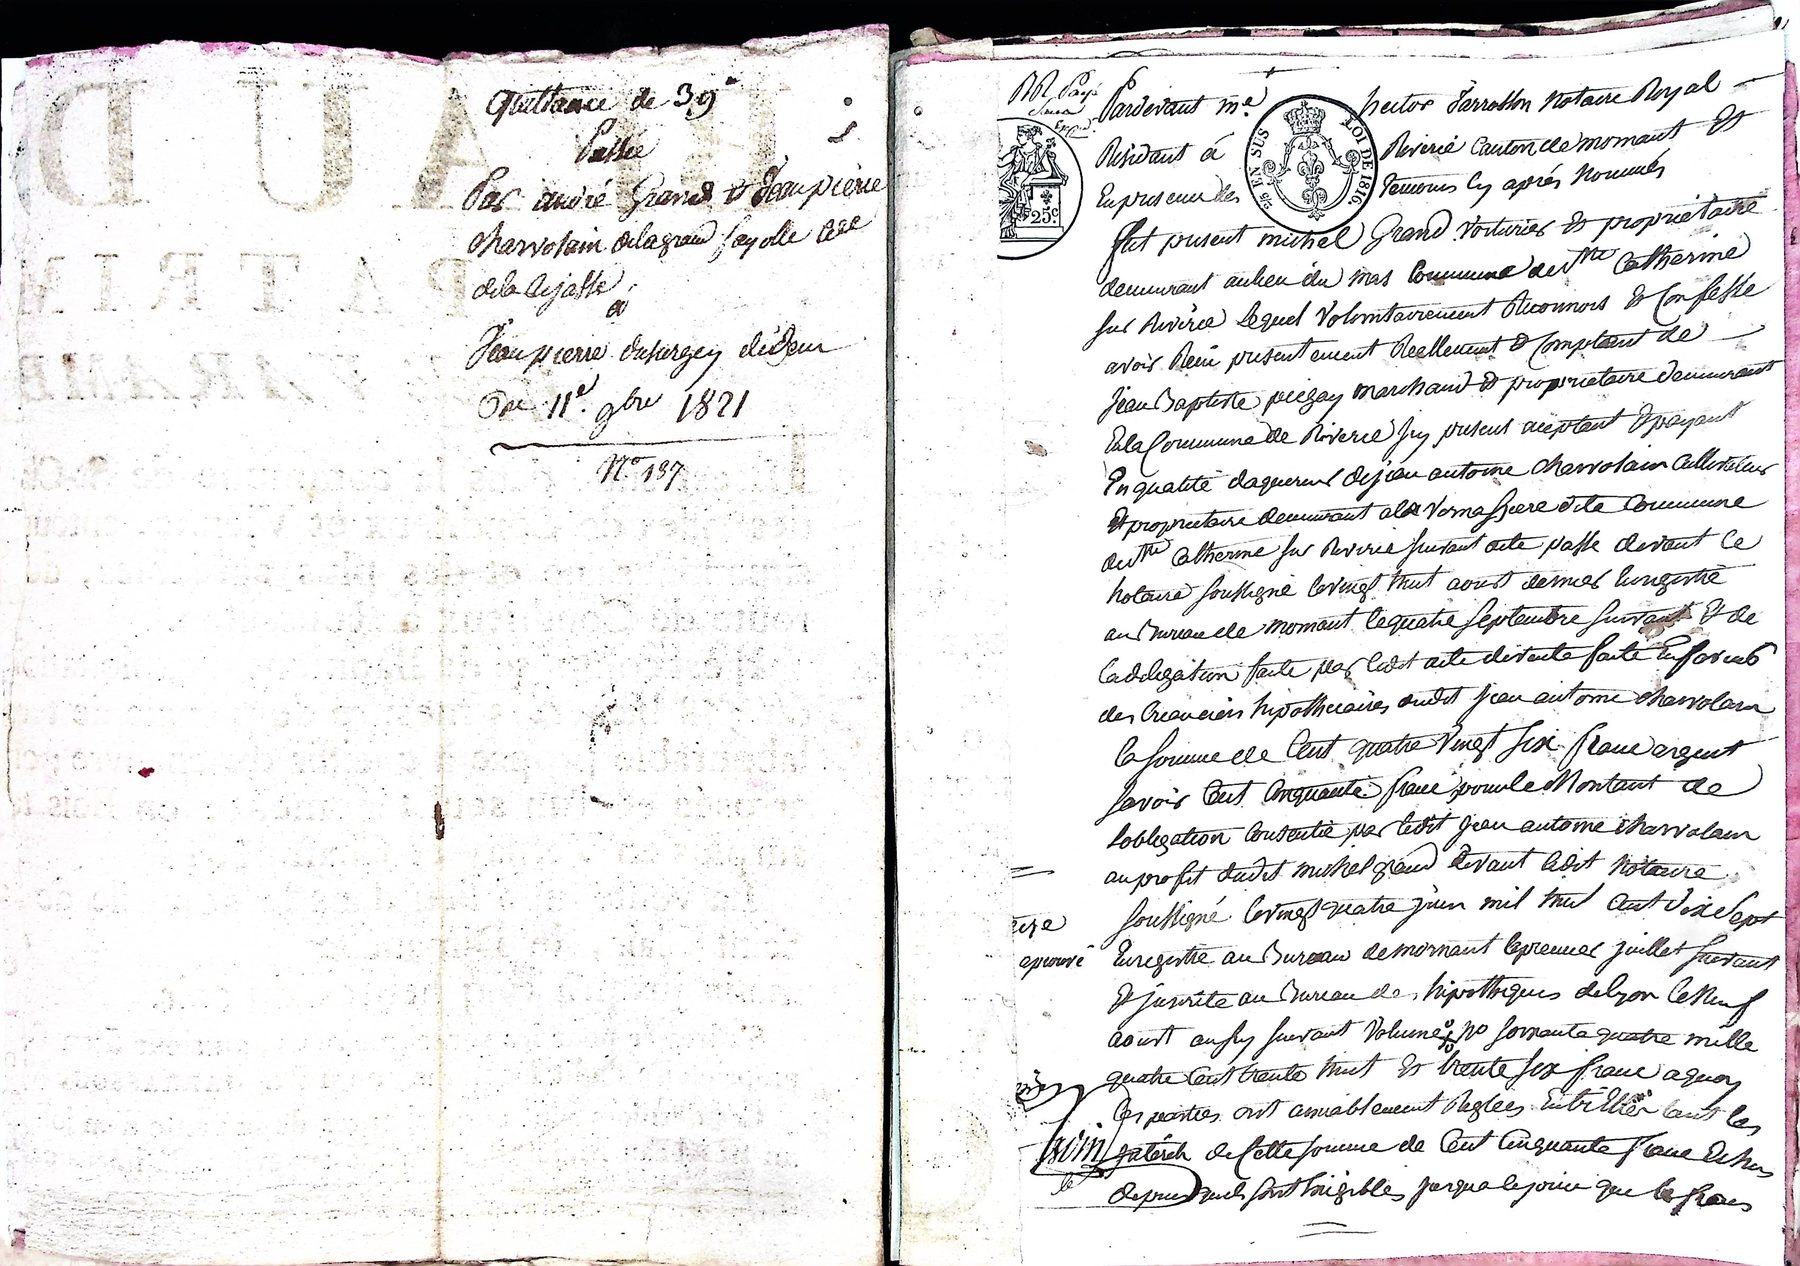 Quittance de 39#
Passée
Par andré Grand & Jeanpierre
charvolain dela grand fayolle Cne
dela Rejasse
à
Jeanpierre duhergey dédeur
Du 11e. 9bre 1821
N° 187
Pardevant me. hector Jarrosson Notaire Royal
Résidant à Riverie Canton de mornant Et
En présence des Temoins Cy après Nommés
EN SUS
LOI DE 1816.
25c.
fut présent michel Grand Voiturier Et propriétaire
demeurant au lieu du mas Commune de ste Catherine
sur Riverie Lequel Volontairement Reconnois Et Confesse
avoir Reçu présentement Réellement & Comptant de
Jean Baptiste piégay marchand Et propriétaire demeurant
En la Commune de Riverie Icy présent acceptant Et payant
En qualité daquereur de jean antoine charvolain Cultivateur
Et propriétaire demeurant a la Commune
de ste Catherine sur Riverie suivant acte passé devant Le
Notaire soussigné levingt huit aoust dernier Enregistré
au Bureau de mornant le quatre septembre suivant Et de
La délégation faite par Ledit acte de vente faite En faveur
des Créanciers hipothécaires dudit jean antoine charvolain
La somme de Cent quatre Vingt six franc argent
savoir Cent Cinquante franc pour le Montant de
Lobligation Consentie par Ledit jean antoine charvolain
au profit dudit michel grand devant Ledit Notaire
soussigné levingt quatre juin mil huit Cent Dix Sept
Enregistré au Bureau de mornant le premier juillet suivant
Et inscrite au Bureau des hipothèques de Lyon le Neuf
aoust aussy suivant Volume no soixante quatre mille
quatre Cent trente huit Et trente six franc a quoy
Les parties ont amiablement Réglées Entre Elles tant les
interest de Cette somme de Cent Cinquante franc Echus
sont Exigibles jusqua cejour que les frais
aprouvé